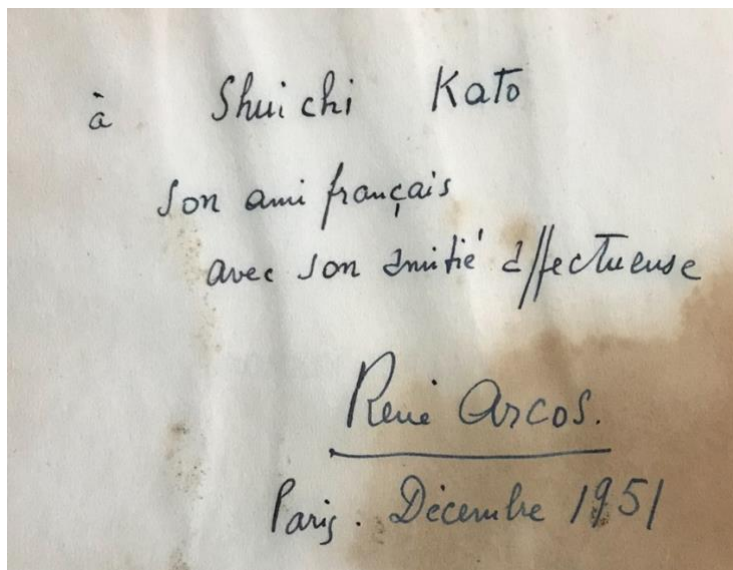 à Shuichi Kato
son ami français
avec son amitié affectueuse
René Arcos.
Paris. Décembre 1951